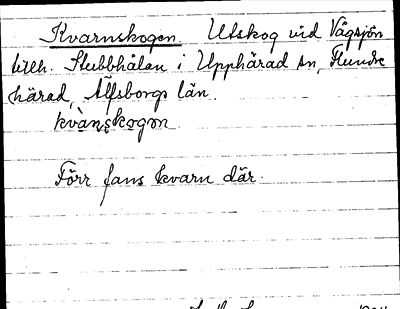 Kvarnskogen. Utskog vid Vågsjön
tillh. Stubbhålan i Upphärad sn, Flundre
härad, Älfsborgs län.
kvànskogon
Förr fans kvarn där.